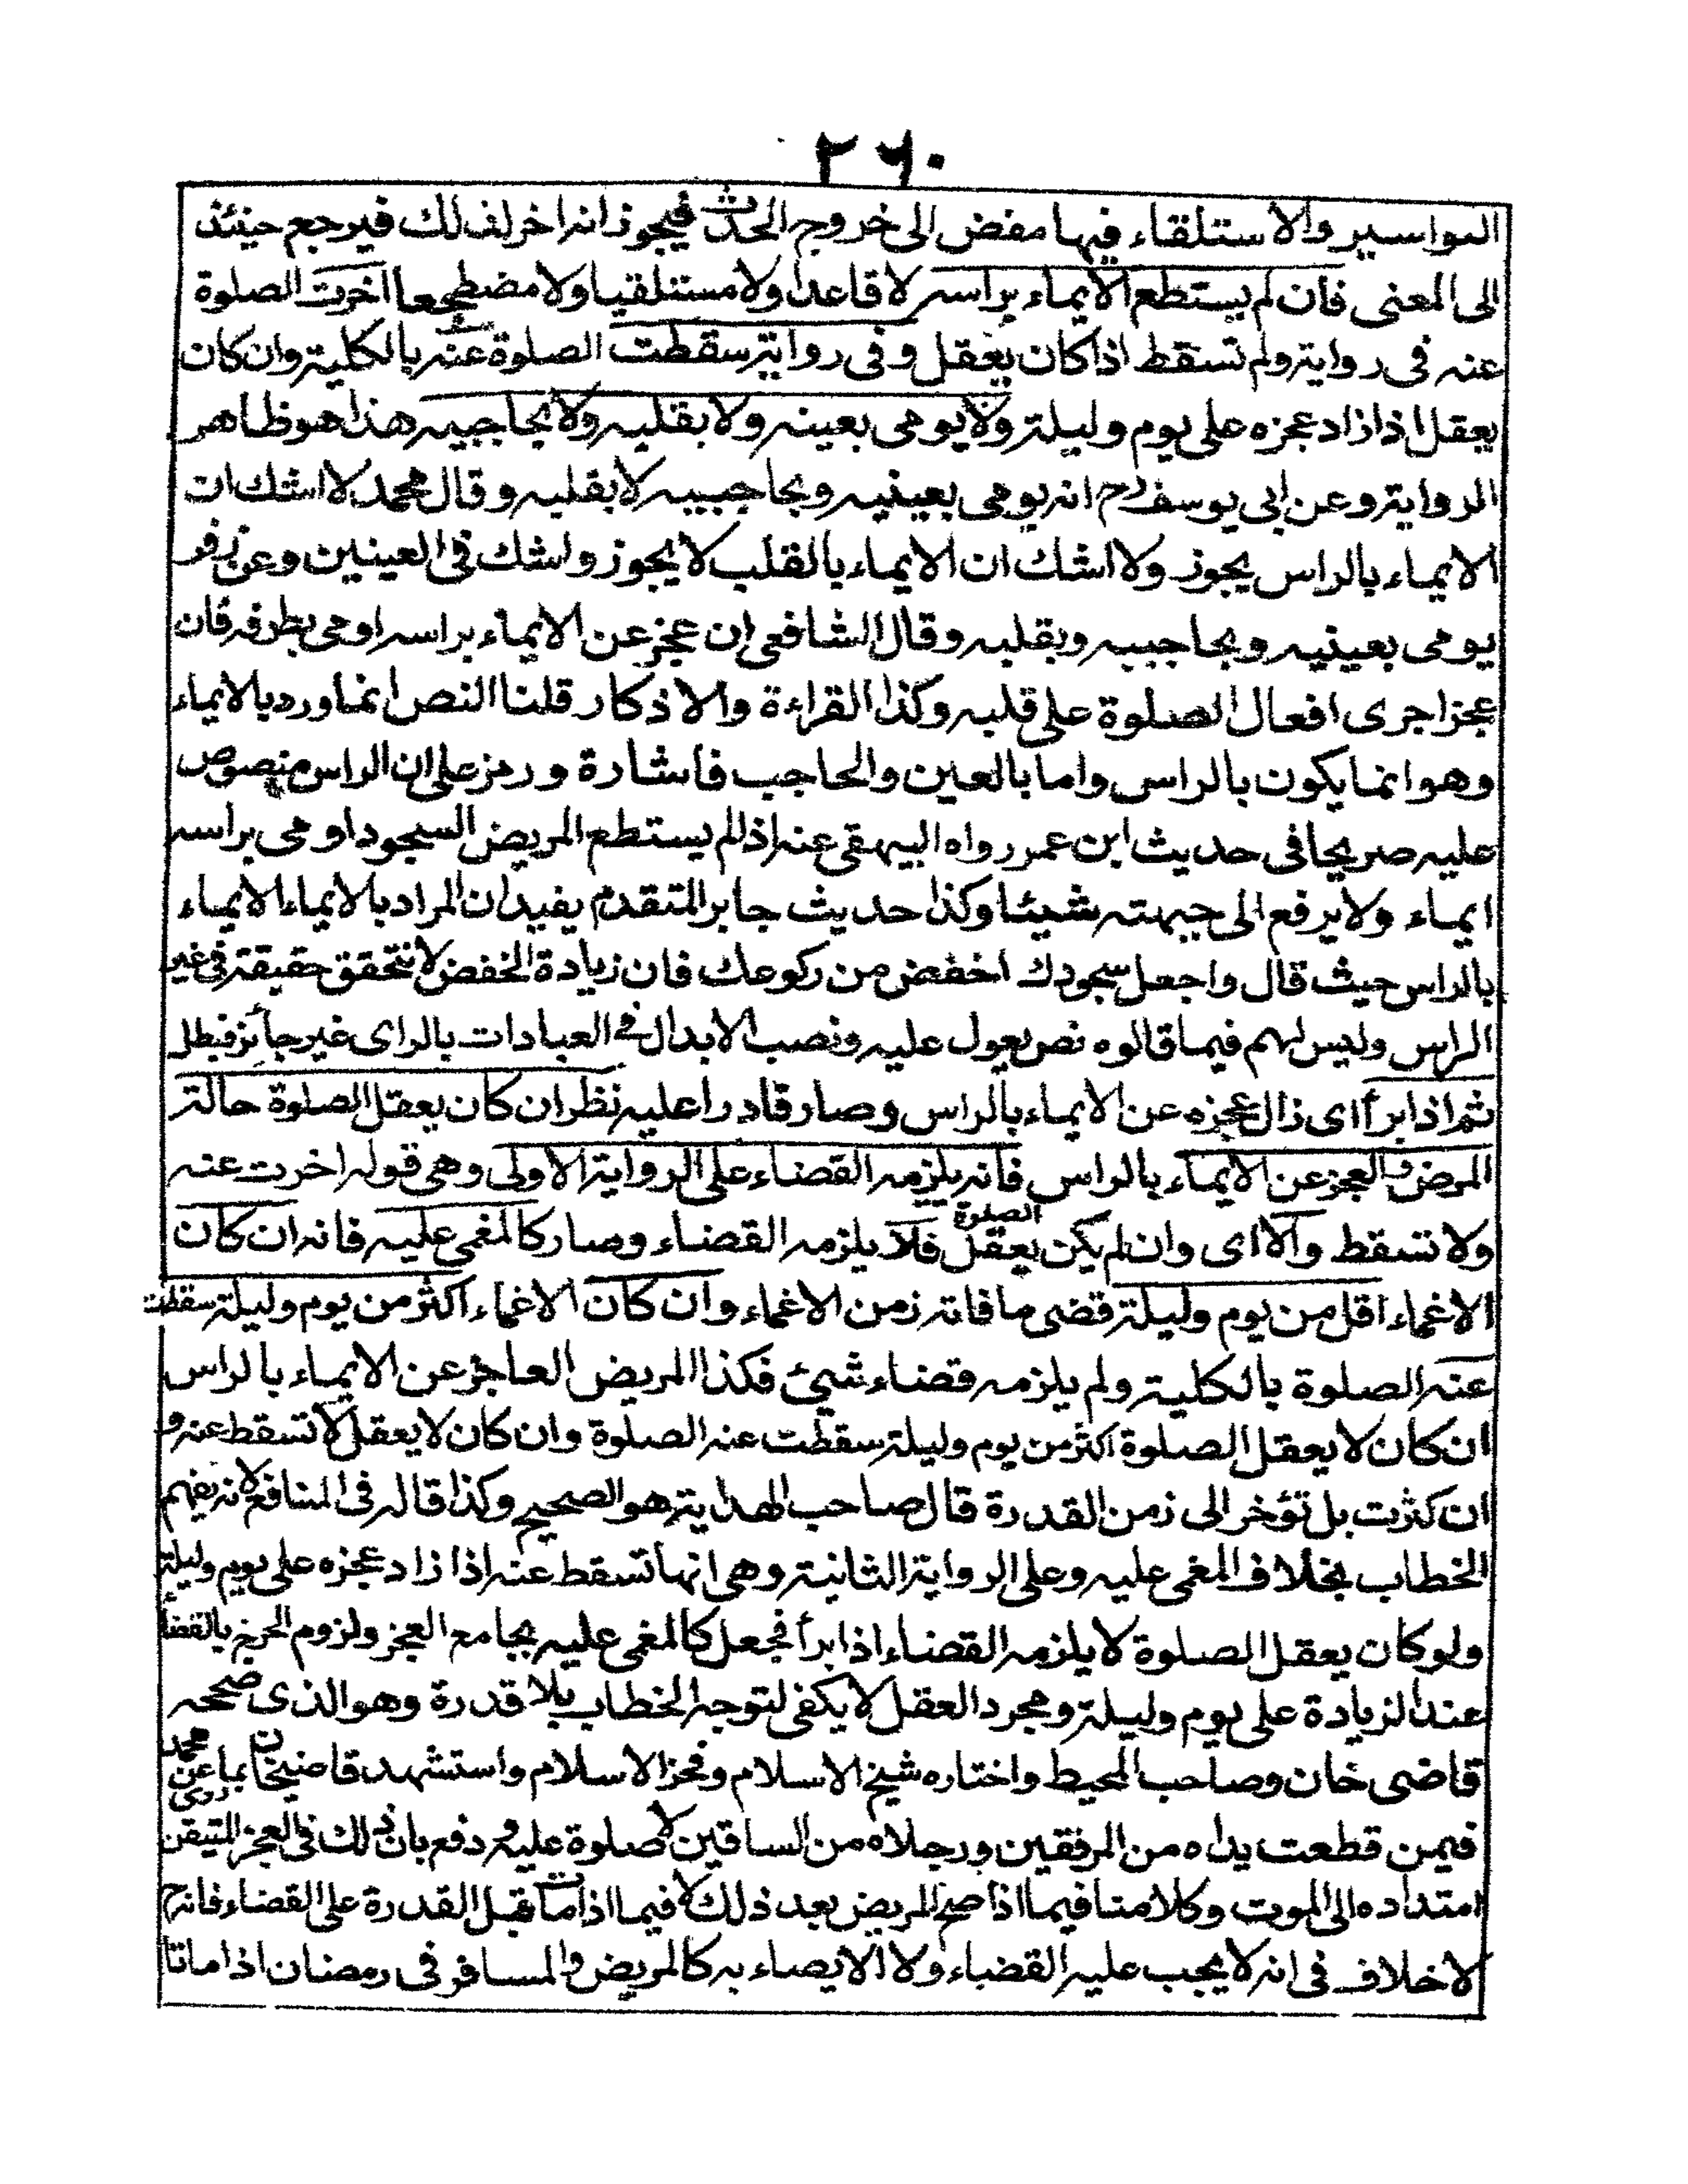 ٢٦٠
البواسير والاستلقاء فيها مفض الى خروج الحدث فيجوز انه اخر لذلك فيرجع حينئذ
الى المعنى فان لم يستطع الايماء براسه لا قاعدا ولا مستلقيا ولا مضطجعا اخرت الصلوة
عنه فى رواية ولم تسقط اذا كان يعقل وفى رواية سقطت الصلوة عنه بالكلية وان كان
يعقل اذا زاد عجزه على يوم وليلة ولا يومى بعينه ولا بقلبه ولا بحاجبيه هذا هو ظاهر
الرواية وعن ابى يوسف رح انه يومى بعينيه وبحاجبيه لا بقلبه وقال محمد لا اشك ان
الايماء بالراس يجوز ولا اشك ان الايماء بالقلب لا يجوز واشك فى العينين وعن زفر
يومى بعينيه وبحاجبيه وبقلبه وقال الشافعى ان عجز عن الايماء براسه اومى بطرفه فان
عجز اجرى افعال الصلوة على قلبه وكذا القراءة والاذكار قلنا النص انما ورد بالايماء
وهو انما يكون بالراس واما بالعين والحاجب فاشارة ورمز على ان الراس منصوص
عليه صريحا فى حديث ابن عمر رواه البيهقى عنه اذا لم يستطع المريض السجود اومى براسه
ايماء ولا يرفع الى جبهته شيئا وكذا حديث جابر المتقدم يفيد ان المراد بالايماء الايماء
بالراس حيث قال واجعل سجودك اخفض من ركوعك فان زيادة الخفض لا تتحقق حقيقة فى غير
الراس وليس لهم فيما قالوه نص يعول عليه ونصب الابدال فى العبادات بالراى غير جائز فبطل
ثم اذا برأ اى زال عجزه عن الايماء بالراس وصار قادرا عليه نظر ان كان يعقل الصلوة حالة
المرض والعجز عن الايماء بالراس فانه يلزمه القضاء على الرواية الاولى وهى قوله اخرت عنه
ولا تسقط والا اى وان لم يكن يعقل الصلوة فلا يلزمه القضاء وصار كالمغمى عليه فانه ان كان
الاغماء اقل من يوم وليلة قضى ما فاته زمن الاغماء وان كان الاغماء اكثر من يوم وليلة سقطت
عنه الصلوة بالكلية ولم يلزمه قضاء شيئ فكذا المريض العاجز عن الايماء بالراس
ان كان لا يعقل الصلوة اكثر من يوم وليلة سقطت عنه الصلوة وان كان لا يعقل لا تسقط عنه و
ان كثرت بل تؤخر الى زمن القدرة قال صاحب الهداية هو الصحيح وكذا قاله فى المنافع لانه يفهم
الخطاب بخلاف المغمى عليه وعلى الرواية الثانية وهى انها تسقط عنه اذا زاد عجزه على يوم وليلة
ولو كان يعقل الصلوة لا يلزمه القضاء اذا برأ فجعل كالمغمى عليه بجامع العجز ولزوم الحرج بالقضاء
عند الزيادة على يوم وليلة ومجرد العقل لا يكفى لتوجه الخطاب بلا قدرة وهو الذى صححه
قاضى خان وصاحب المحيط واختاره شيخ الاسلام وفخر الاسلام واستشهد قاضيخان بما روى عن محمد
فيمن قطعت يداه من المرفقين ورجلاه من الساقين لا صلوة عليه ودفع بان ذلك فى العجز المتيقن
امتداده الى الموت وكلامنا فيما اذا صح المريض بعد ذلك لا فيما اذا مات قبل القدرة على القضاء فانه ح
لا خلاف فى انه لا يجب عليه القضاء ولا الايصاء به كالمريض والمسافر فى رمضان اذا ماتا